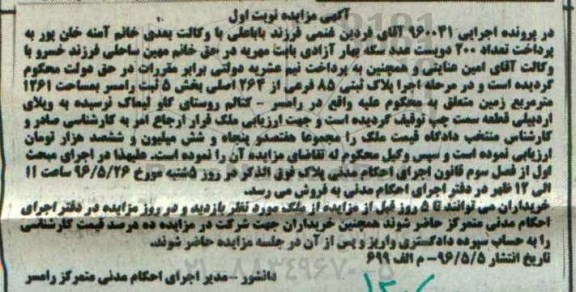 آگهی مزایده نوبت اول
در پرونده اجرایی ۹۶۰۰۳۱ آقای فردین غنمی فرزند باباعلی با وکالت بعدی خانم آمنه خان پور به
پرداخت تعداد ۲۰۰ دویست عدد سکه بهار آزادی بابت مهریه در حق خانم مهین ساحلی فرزند خسرو با
وکالت آقای امین عنایتی و همچنین به پرداخت نیم عشریه دولتی برابر مقررات در حق دولت محکوم
گردیده است و در مرحله اجرا پلاک ثبتی ۸۵ فرعی از ۲۶۳ اصلی بخش ۵ ثبت رامسر بمساحت ۱۲۶۱
مترمربع زمین متعلق به محکوم علیه واقع در رامسر - کتالم روستای گاو لیماک نرسیده به ویلای
اردبیلی قطعه سمت چپ توقیف گردیده است و جهت ارزیابی ملک قرار ارجاع امر به کارشناسی صادر و
کارشناس منتخب دادگاه قیمت ملک را مجموعا هفتصدو پنجاه و شش میلیون و ششصد هزار تومان
ارزیابی نموده است و سپس وکیل محکوم له تقاضای مزایده آن را نموده است. علیهذا در اجرای مبحث
اول از فصل سوم قانون اجرای احکام مدنی پلاک فوق الذکر در روز ۵شنبه مورخ ۹۶/۵/۲۶ ساعت ۱۱
الی ۱۲ ظهر در دفتر اجرای احکام مدنی به فروش می رسد.
خریداران می توانند تا ۵ روز قبل از مزایده از ملک مورد نظر بازدید و در روز مزایده در دفتر اجرای
احکام مدنی متمرکز حاضر شوند همچنین خریداران جهت شرکت در مزایده ده هرصد قیمت کارشناسی
را به حساب سپرده دادگستری واریز و پس از آن در جلسه مزایده حاضر شوند.
تاریخ انتشار ۹۶/۵/۵- م الف ۶۹۹
دانشور - مدیر اجرای احکام مدنی متمرکز رامسر